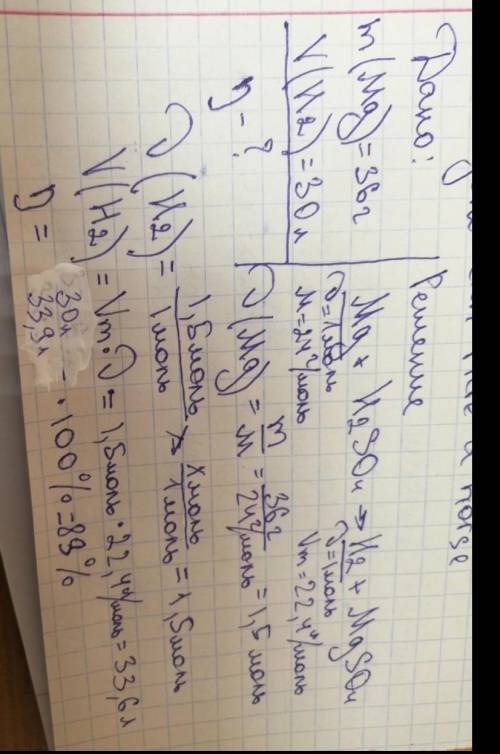 Дано:
m(Mg)=36г
V(H2)=30л
η-?
Решение
Mg + H2SO4 → H2 + MgSO4
υ=1моль υ=1моль
M=24г/моль Vm=22,4л/моль
υ(Mg) = m/M = 36г/24г/моль = 1,5 моль
υ(H2) = 1,5моль/1моль > xмоль/1моль = 1,5моль
V(H2) = Vm·υ = 1,5моль·22,4л/моль = 33,6л
η = 30л/33,9л · 100% = 89%